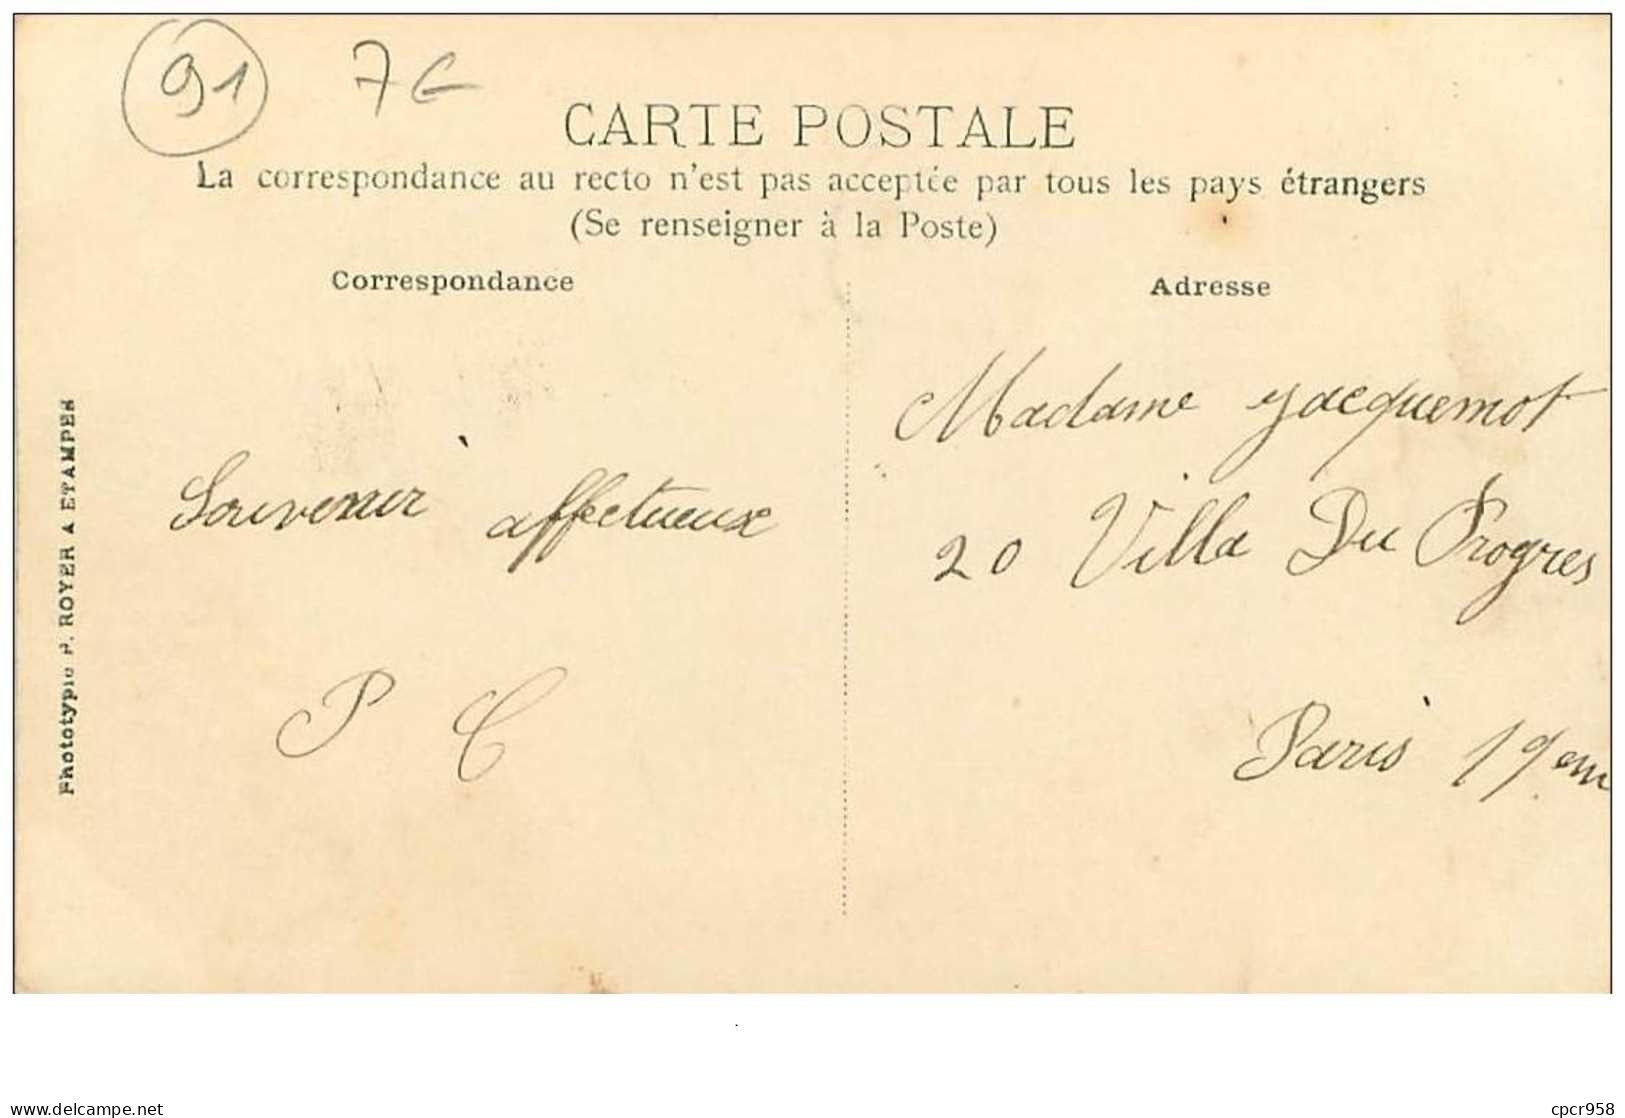 91 7€
CARTE POSTALE
La correspondance au recto n'est pas acceptée par tous les pays étrangers
(Se renseigner à la Poste)
Correspondance
Adresse
Phototypie P. ROYER A ETAMPES
Souvenir affectueux
P C
Madame Jacquemot
20 Villa Du Progres
Paris 19em
www.delcampe.net
cpcr958